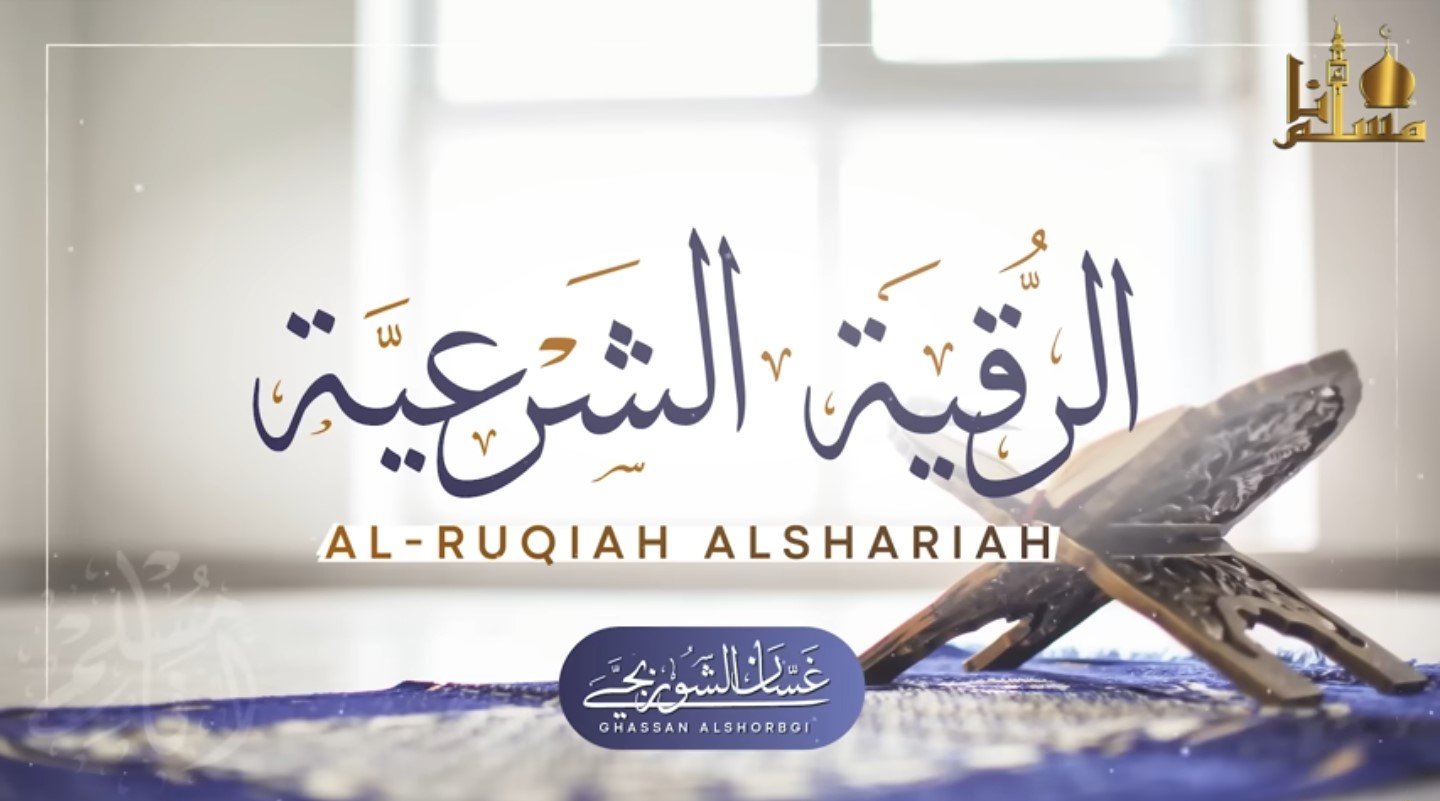 أنا مسلم
الرُّقية الشَّرْعِيَّة
AL-RUQIAH ALSHARIAH
غَسَّان الشُّوُرْبَجِي
GHASSAN ALSHORBGI